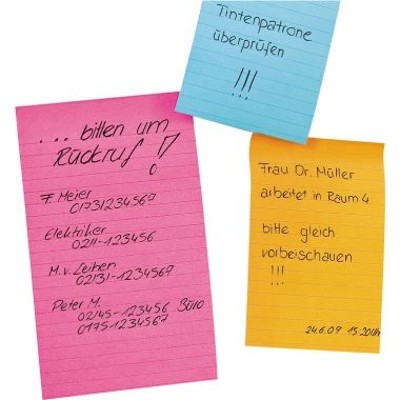 Tintenpatrone
überprüfen
!!!
... bitten um
Rückruf!
F. Meier
01731234567
Elektriker
0211-123456
M. v. Leihen
02131-1234567
Peter M.
02145-123456 Büro
0175-1234567
Frau Dr. Müller
arbeitet in Raum 4
bitte gleich
vorbeischauen
!!!
24.6.09 15:20Uhr